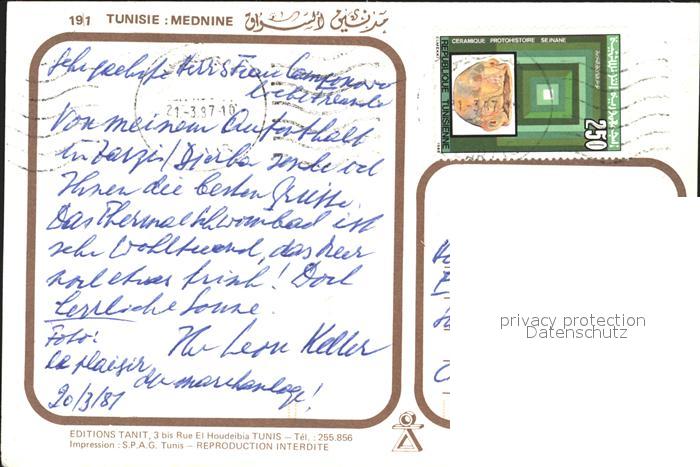 191 TUNISIE : MEDNINE مدنين السواق
CERAMIQUE PROTOHISTOIRE SEJNANE
REPUBLIQUE TUNISIENNE
250
21-3.87-10
Herr & Frau Camponovo
liebe Freunde
Von meinem Aufenthalt
in Zarzis/Djerba sende ich
Ihnen die besten Grüsse.
Das Thermalschwimbad ist
sehr wohltuend, das Meer
noch etwas frisch! Doch
herrliche Sonne.
Foto: Ihr Leon Keller
le plaisir
du marchandage!
20/3/87
privacy protection
Datenschutz
EDITIONS TANIT, 3 bis Rue El Houdeibia TUNIS – Tél. : 255.856
Impression : S.P.A.G. Tunis – REPRODUCTION INTERDITE